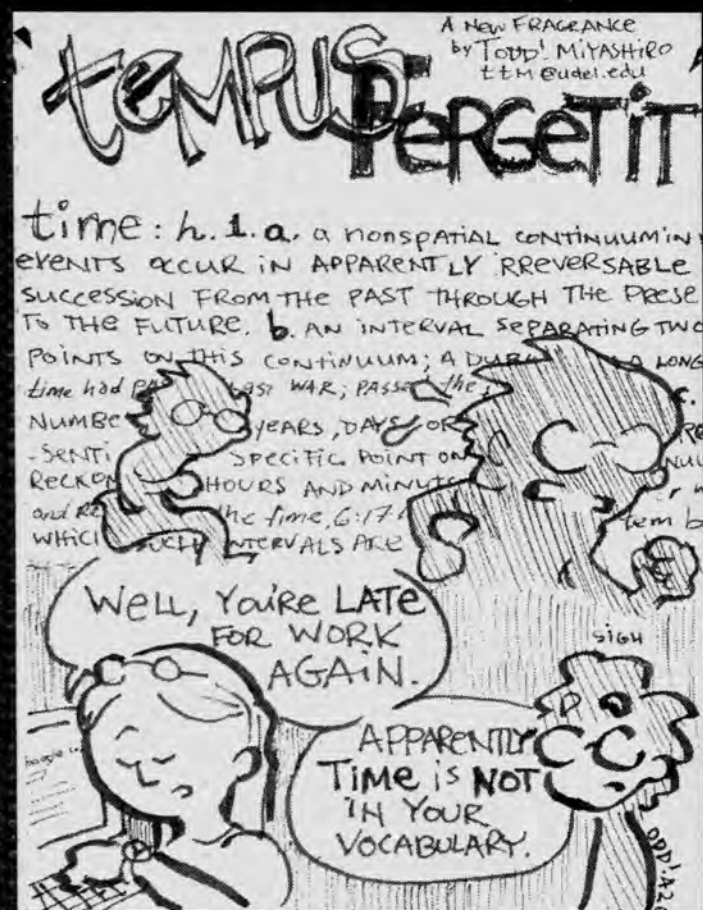 A NEW FRAGRANCE
by TODD! MIYASHIRO
ttm@udel.edu
tEMPUS
FERGETIT
time: n. 1. a. a nonspatial continuum in
events occur in apparently irreversable
succession from the past through the prese
to the future. b. An interval separating two
points on this continuum; a dura a long
time had pa last war; passed the
c.
numbe years, days or
-senti specific point on
reckon hours and minut
and re the time, 6:17
tem b
which such intervals are
WELL, YOU'RE LATE
FOR WORK
AGAIN.
SIGH
APPARENTLY
TIME is NOT
IN YOUR
VOCABULARY.